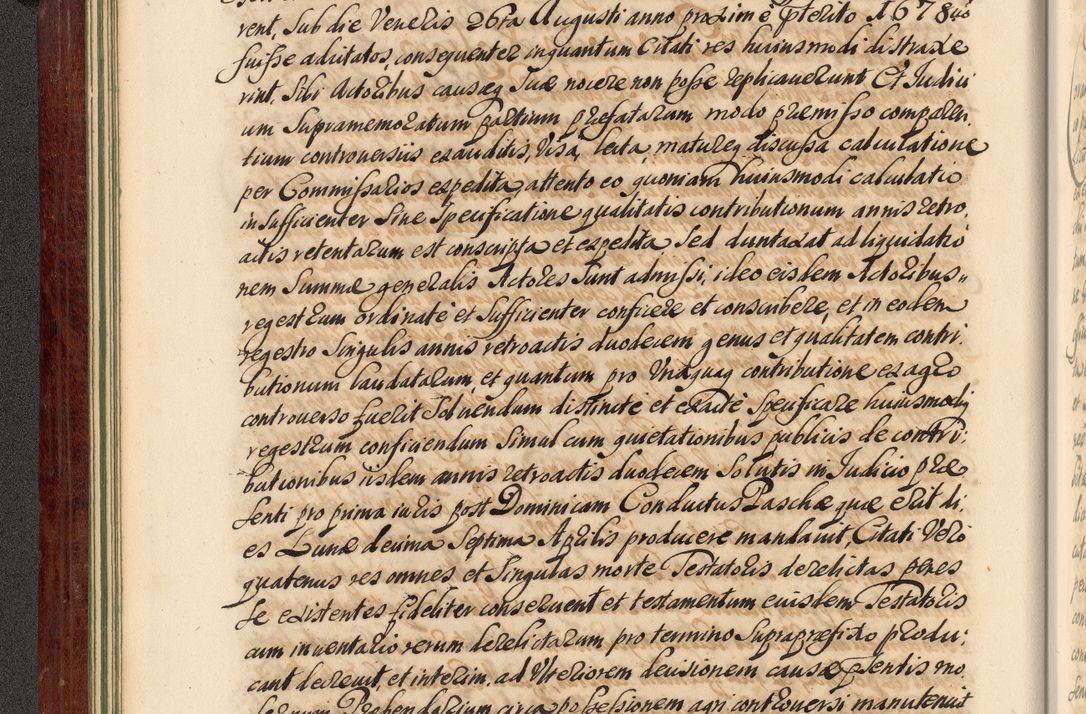 rent, Sub die Veneris 26ta Augusti anno proximè pterito 1678uo
fuisse aditatos, consequenter inquantum Citati res huiusmodi distraxe
rint, Sibi Actoribus causaeq Suae nocere non posse replicauerunt Et Iudici
um Supramemoratum partium praefatarum modo praemisso comparen
tium controuersiis exauditis, Visa, lecta, matureq discussa calculatione
per Commissarios expedita, attento eo, quoniam huiusmodi calculatio
insufficienter Sine Specificatione qualitatis contributionum annis retro,
actis retentarum est conscripta et expedita, Sed duntaxat ad liquidatio
nem Summae generalis Actores Sunt admissi, ideo eisdem Actoribus"
regestrum ordinatè et Sufficienter conficere et conscribere, et in eodem
regestro Singulis annis retroactis duodecem genus et qualitatem contri,
butionum laudatarum, et quantum pro Vnaquaq contributione ex agro
controuerso fuerit Soluendum distinctè et exactè Specificare huiusmodj
regestrum conficiendum Simul cum quietationibus publicis de contri:
butionibus iisdem annis retroactis duodecem Solutis in Iudicio prae
senti pro prima iuris post Dominicam Conductus Paschae quae erit di,
es Lunae decima Septima Aprilis producere mandauit, Citati Vero
quatenus res omnes et Singulas morte Testatoris derelictas penes
Se existentes fideliter conseruent et testamentum eiusdem Testatoris
cum inuentario rerum derelictarum pro termino Supraprefixo produ:
cant decreuit, et interim, ad Vlteriorem decisionem causae pntis mo
dernum Prebendarium circa possessionem agri controuersi manutenuit